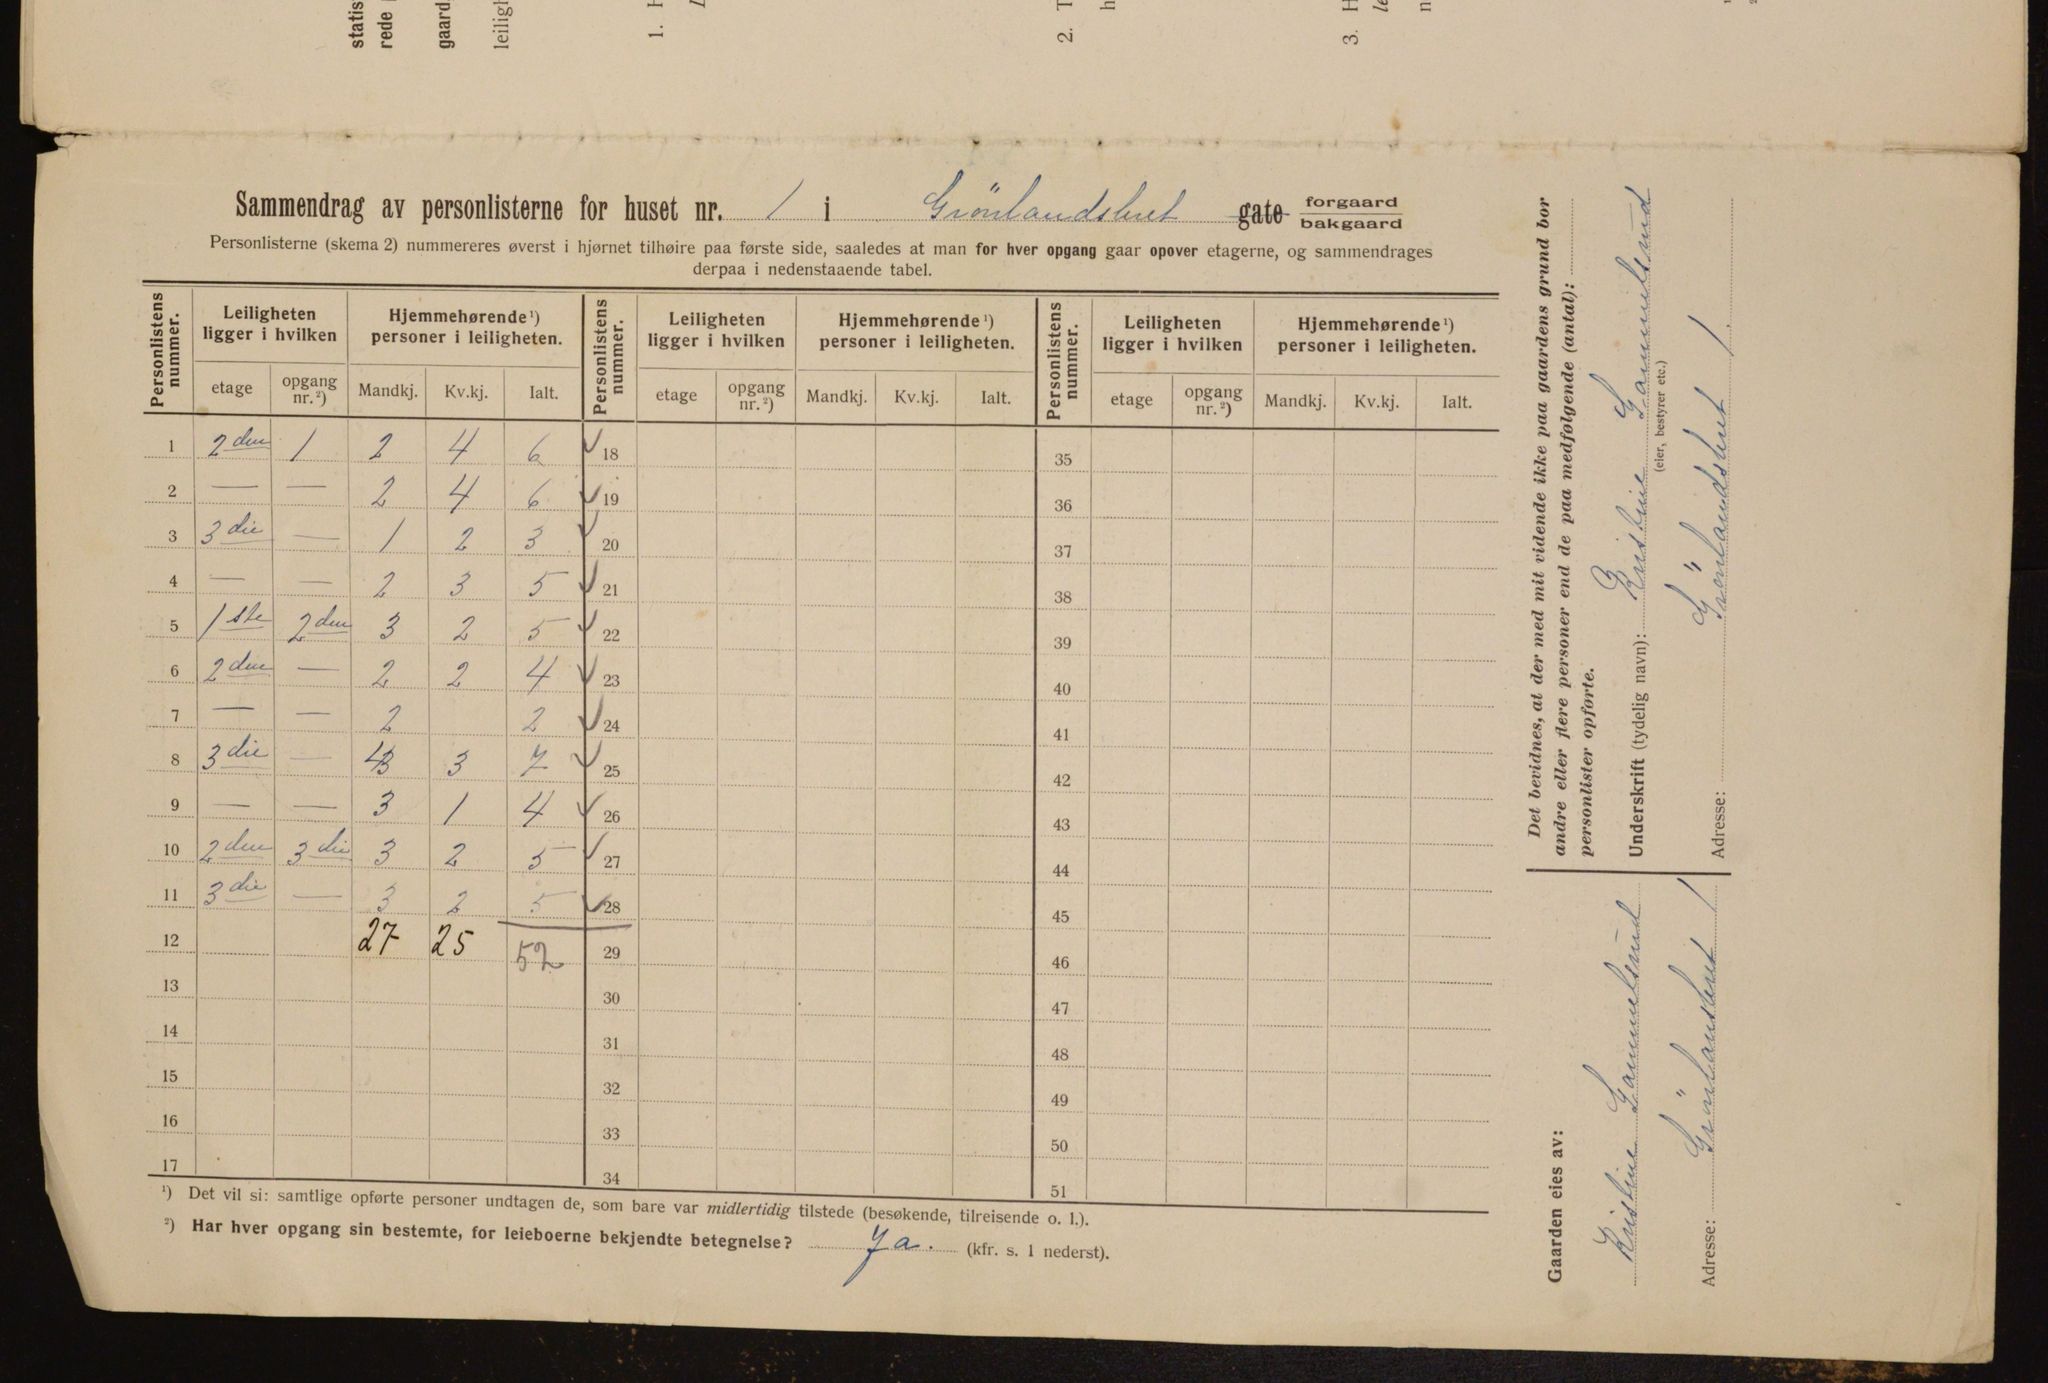 statis
rede
gaard
leiligh
1. H
2. T
h
3. H
le
n
Sammendrag av personlisterne for huset nr. 1 i Grönlandsleret gate forgaard bakgaard
Personlisterne (skema 2) nummereres øverst i hjørnet tilhøire paa første side, saaledes at man for hver opgang gaar opover etagerne, og sammendrages
derpaa i nedenstaaende tabel.
Personlistens nummer. Leiligheten ligger i hvilken Hjemmehørende¹) personer i leiligheten. Personlistens nummer. Leiligheten ligger i hvilken Hjemmehørende¹) personer i leiligheten. Personlistens nummer. Leiligheten ligger i hvilken Hjemmehørende¹) personer i leiligheten.
etage opgang nr.²) Mandkj. Kv.kj. Ialt. etage opgang nr.²) Mandkj. Kv.kj. Ialt. etage opgang nr.²) Mandkj. Kv.kj. Ialt.
1 2den 1 2 4 6 ✓ 18 35
2 — — 2 4 6 ✓ 19 36
3 3die — 1 2 3 ✓ 20 37
4 — — 2 3 5 ✓ 21 38
5 1ste 2den 3 2 5 ✓ 22 39
6 2den — 2 2 4 ✓ 23 40
7 — — 2 2 ✓ 24 41
8 3die — 4 3 7 ✓ 25 42
9 — — 3 1 4 ✓ 26 43
10 2den 3die 3 2 5 ✓ 27 44
11 3die — 3 2 5 ✓ 28 45
12 27 25 52 29 46
13 30 47
14 31 48
15 32 49
16 33 50
17 34 51
¹) Det vil si: samtlige opførte personer undtagen de, som bare var midlertidig tilstede (besøkende, tilreisende o. l.).
²) Har hver opgang sin bestemte, for leieboerne bekjendte betegnelse? Ja. (kfr. s. 1 nederst).
Det bevidnes, at der med mit vidende ikke paa gaardens grund bor
andre eller flere personer end de paa medfølgende (antal):
personlister opførte.
Underskrift (tydelig navn): Kristine Samuelsrud
(eier, bestyrer etc.)
Adresse: Grönlandsleret 1.
Gaarden eies av:
Kristine Samuelsrud
Adresse: Grönlansleret 1